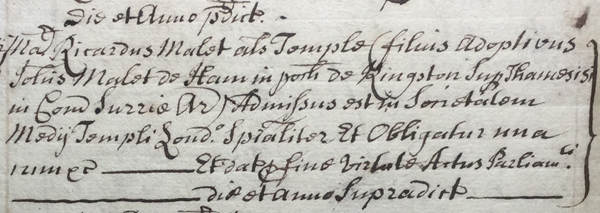 die et Anno p̄dict.
Mar̄ Ricardus Malet als Temple (filius Adoptivus
Joħis Malet de Ham in poth de Kingston Sup Thamesis
in Com̄ Surriæ Ar) Admissus est in Societatem
Medij Templi Lond.º Sp̄ialiter Et Obligatur una
cum &c ——— Et dat p fine Virtute Actus Parliam.ti
——— die et anno Supradict ———